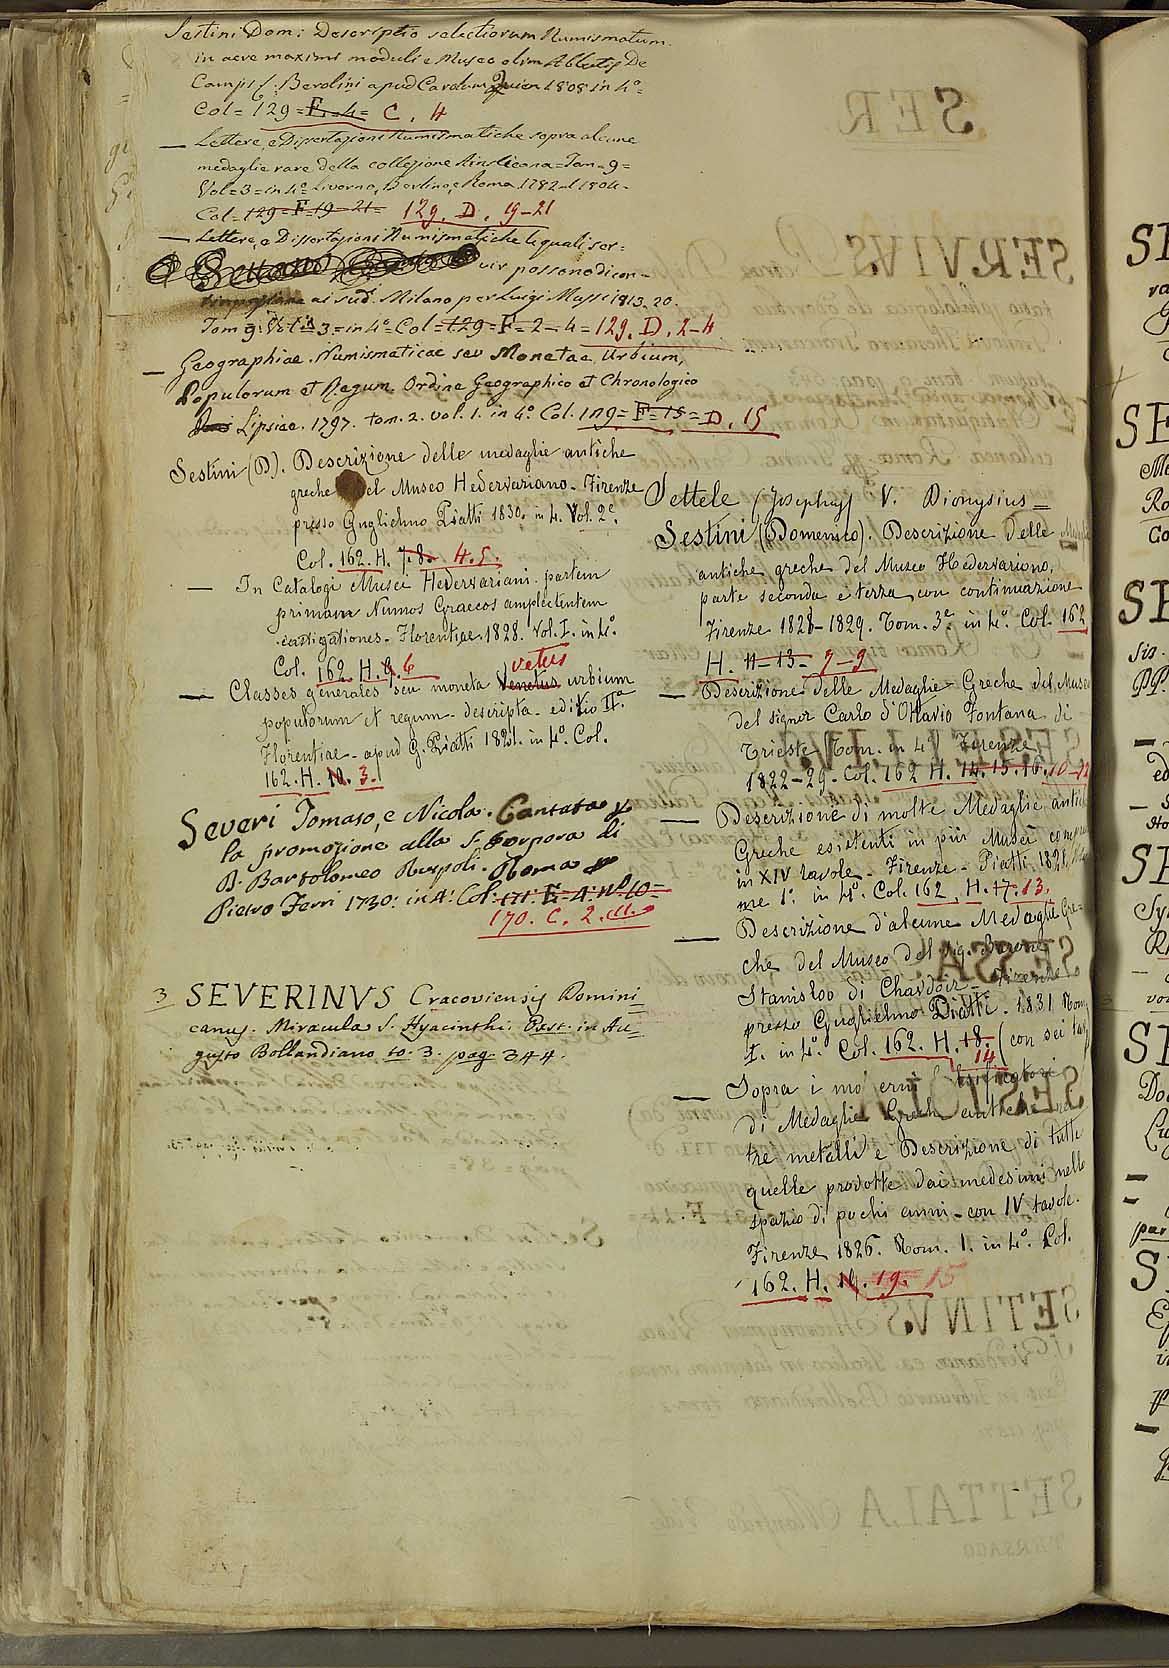 Sestini Dom: Descriptio selectiorum Numismatum
in aere maximi moduli e Museo olim Abbatis De
Camps &: Berolini apud Carolum Quien 1808 in 4º=
Col= 129= E=4= C. 4
— Lettere, e Dissertazioni Numismatiche sopra alcune
medaglie rare della collezione Ainslieana=Tom=9=
Vol=3=in 4º Livorno, Berlino, e Roma 1782=1804.
Col=129=F=19=21= 129. D. 19-21
— Lettere, e Dissertazioni Numismatiche le quali ser=
vir possono di con-
ai sud. Milano per Luigi Mussi 1813-20.
Tom 9: Vol: 3=in 4º=Col=129=F=2=4=129. D. 2-4
— Geographiae Numismaticae seu Monetae Urbium,
Populorum et Regum Ordine Geographico et Chronologico
Lipsiae. 1797. tom. 2. vol. 1. in 4º Col. 129= F=15= D. 15
Sestini (D). Descrizione delle medaglie antiche
greche del Museo Hedervariano - Firenze
presso Guglielmo Piatti 1830. in 4. Vol. 2º.
Col. 162. H. 7.8. 4.5.
— In Catalogi Musei Hedervariani partem
primam Numos Graecos amplectentem
castigationes. Florentiae 1828. Vol. I. in 4º.
Col. 162. H. 9. 6
vetus
— Classes generales seu moneta Venetus urbium
populorum et regum - descripta - editio IIª
Florentiae - apud G. Piatti 1821. in 4º. Col.
162. H. 10. 3.
Severi Tomaso, e Nicola. Cantata p
la promozione alla S. Porpora di
D. Bartolomeo Ruspoli. Roma p
Pietro Ferri 1730: in 4: Col: 171: E=4: nº 10=
170. C. 2. 
3 SEVERINVS Cracoviensis Domini
canus. Miracula S. Hyacinthi. Exst. in Au-
gusto Bollandiano to. 3. pag 344.
Settele (Josephus) V. Dionysius=
Sestini (Domenico). Descrizione delle
antiche greche del Museo Hedervariano,
parte seconda e terza con continuazione
Firenze 1828-1829. Tom. 3º in 4º. Col. 162
H. 11-13- 7-9
— Descrizione delle Medaglie Greche del Museo
del signor Carlo d'Ottavio Fontana di
Trieste Tom. in 4 Firenze
1822-29. Col. 162 H. 14.15.16. 10-12
— Descrizione di molte Medaglie antiche
Greche esistenti in più Musei
in XIV tavole - Firenze - Piatti. 1828.
me 1º. in 4º. Col. 162. H. 17. 13.
— Descrizione d'alcune Medaglie Gre=
che del Museo del Sig. Barone
Stanislao di Chaudoir - Firenze
presso Guglielmo Piatti. 1831 Tom.
I. in 4º. Col. 162. H. 18. (con sei tav
14
— Sopra i moderni falsificatori
di Medaglie Greche antiche ne
tre metalli e Descrizione di tutte
quelle prodotte dai medesimi nello
spazio di pochi anni - con IV tavole.
Firenze 1826. Tom. 1. in 4º. Col.
162. H. 19. 19. 15